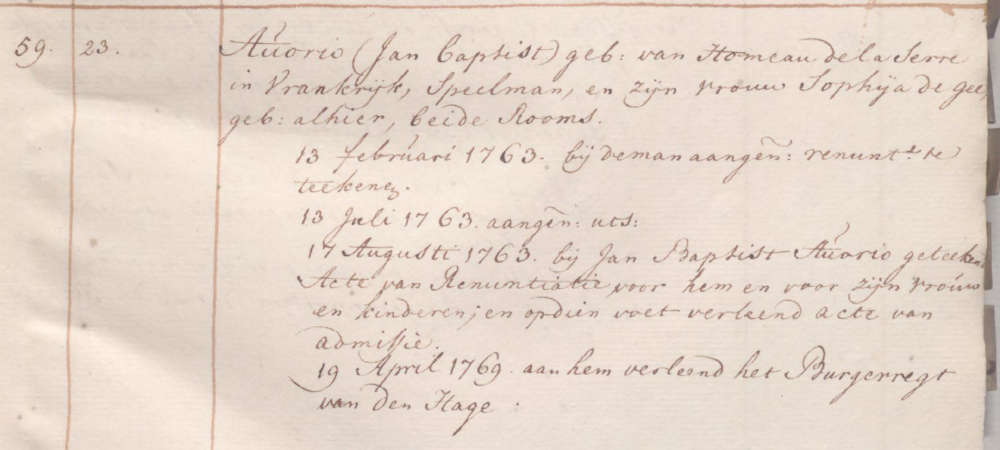 59. 23. Auorio (Jan Baptist) geb: van Homeau de la Serre
in Vrankrijk, Speelman, en zijn vrouw Sophija de Gee,
geb: alhier, beide Rooms.
13 februari 1763. bij de man aangen̄: renunt.e te
teekenen.
13 Juli 1763. aangen̄: uts:
17 Augusti 1763. bij Jan Baptist Auorio geteekend
Acte van Renuntiatie voor hem en voor zijn vrouw
en kinderen; en opdien voet verleend acte van
admissie.
19 April 1769. aan hem verleend het Burgerregt
van den Hage.